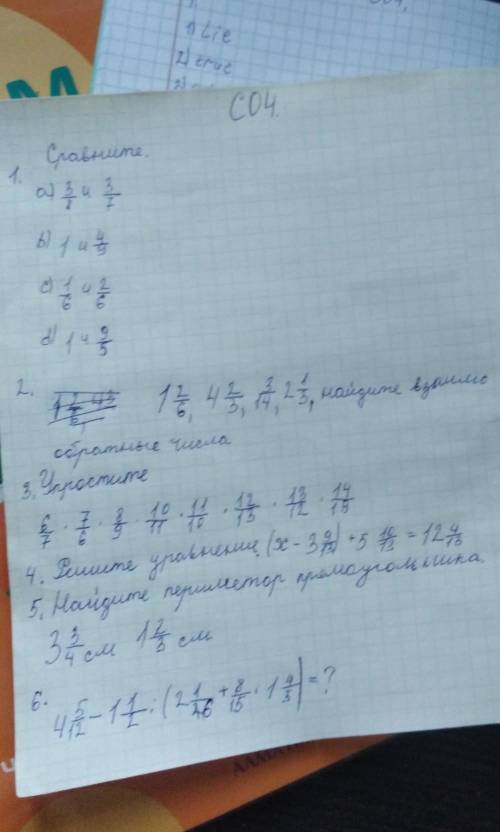 1) Lie
2)
СО4.
1. Сравните.
a) 3/8 и 3/7
b) 1 и 4/9
c) 1/6 и 2/6
d) 1 и 9/5
2. 1 2/6, 4 2/3, 3/14, 2 1/3, найдите взаимо
обратные числа
3. Упростите
6/7 · 7/6 · 8/9 · 10/11 · 11/10 · 12/13 · 13/12 · 14/15
4. Решите уравнение (x - 3 9/13) + 5 10/13 = 12 4/13
5. Найдите периметр прямоугольника.
3 3/4 см 1 2/3 см
6. 4 5/12 - 1 1/2 : (2 1/6 + 8/15 · 1 4/5) = ?